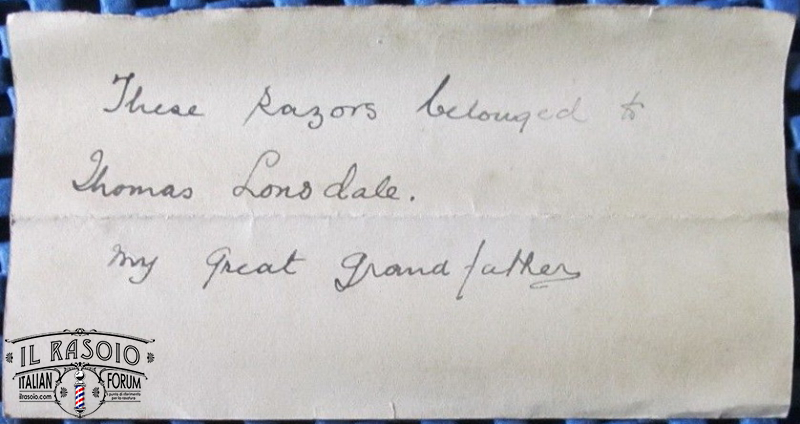 These Razors belonged to
Thomas Lonsdale.
My Great Grandfather
IL RASOIO
ITALIAN FORUM
ilrasoio.com
il punto di riferimento
per la rasatura